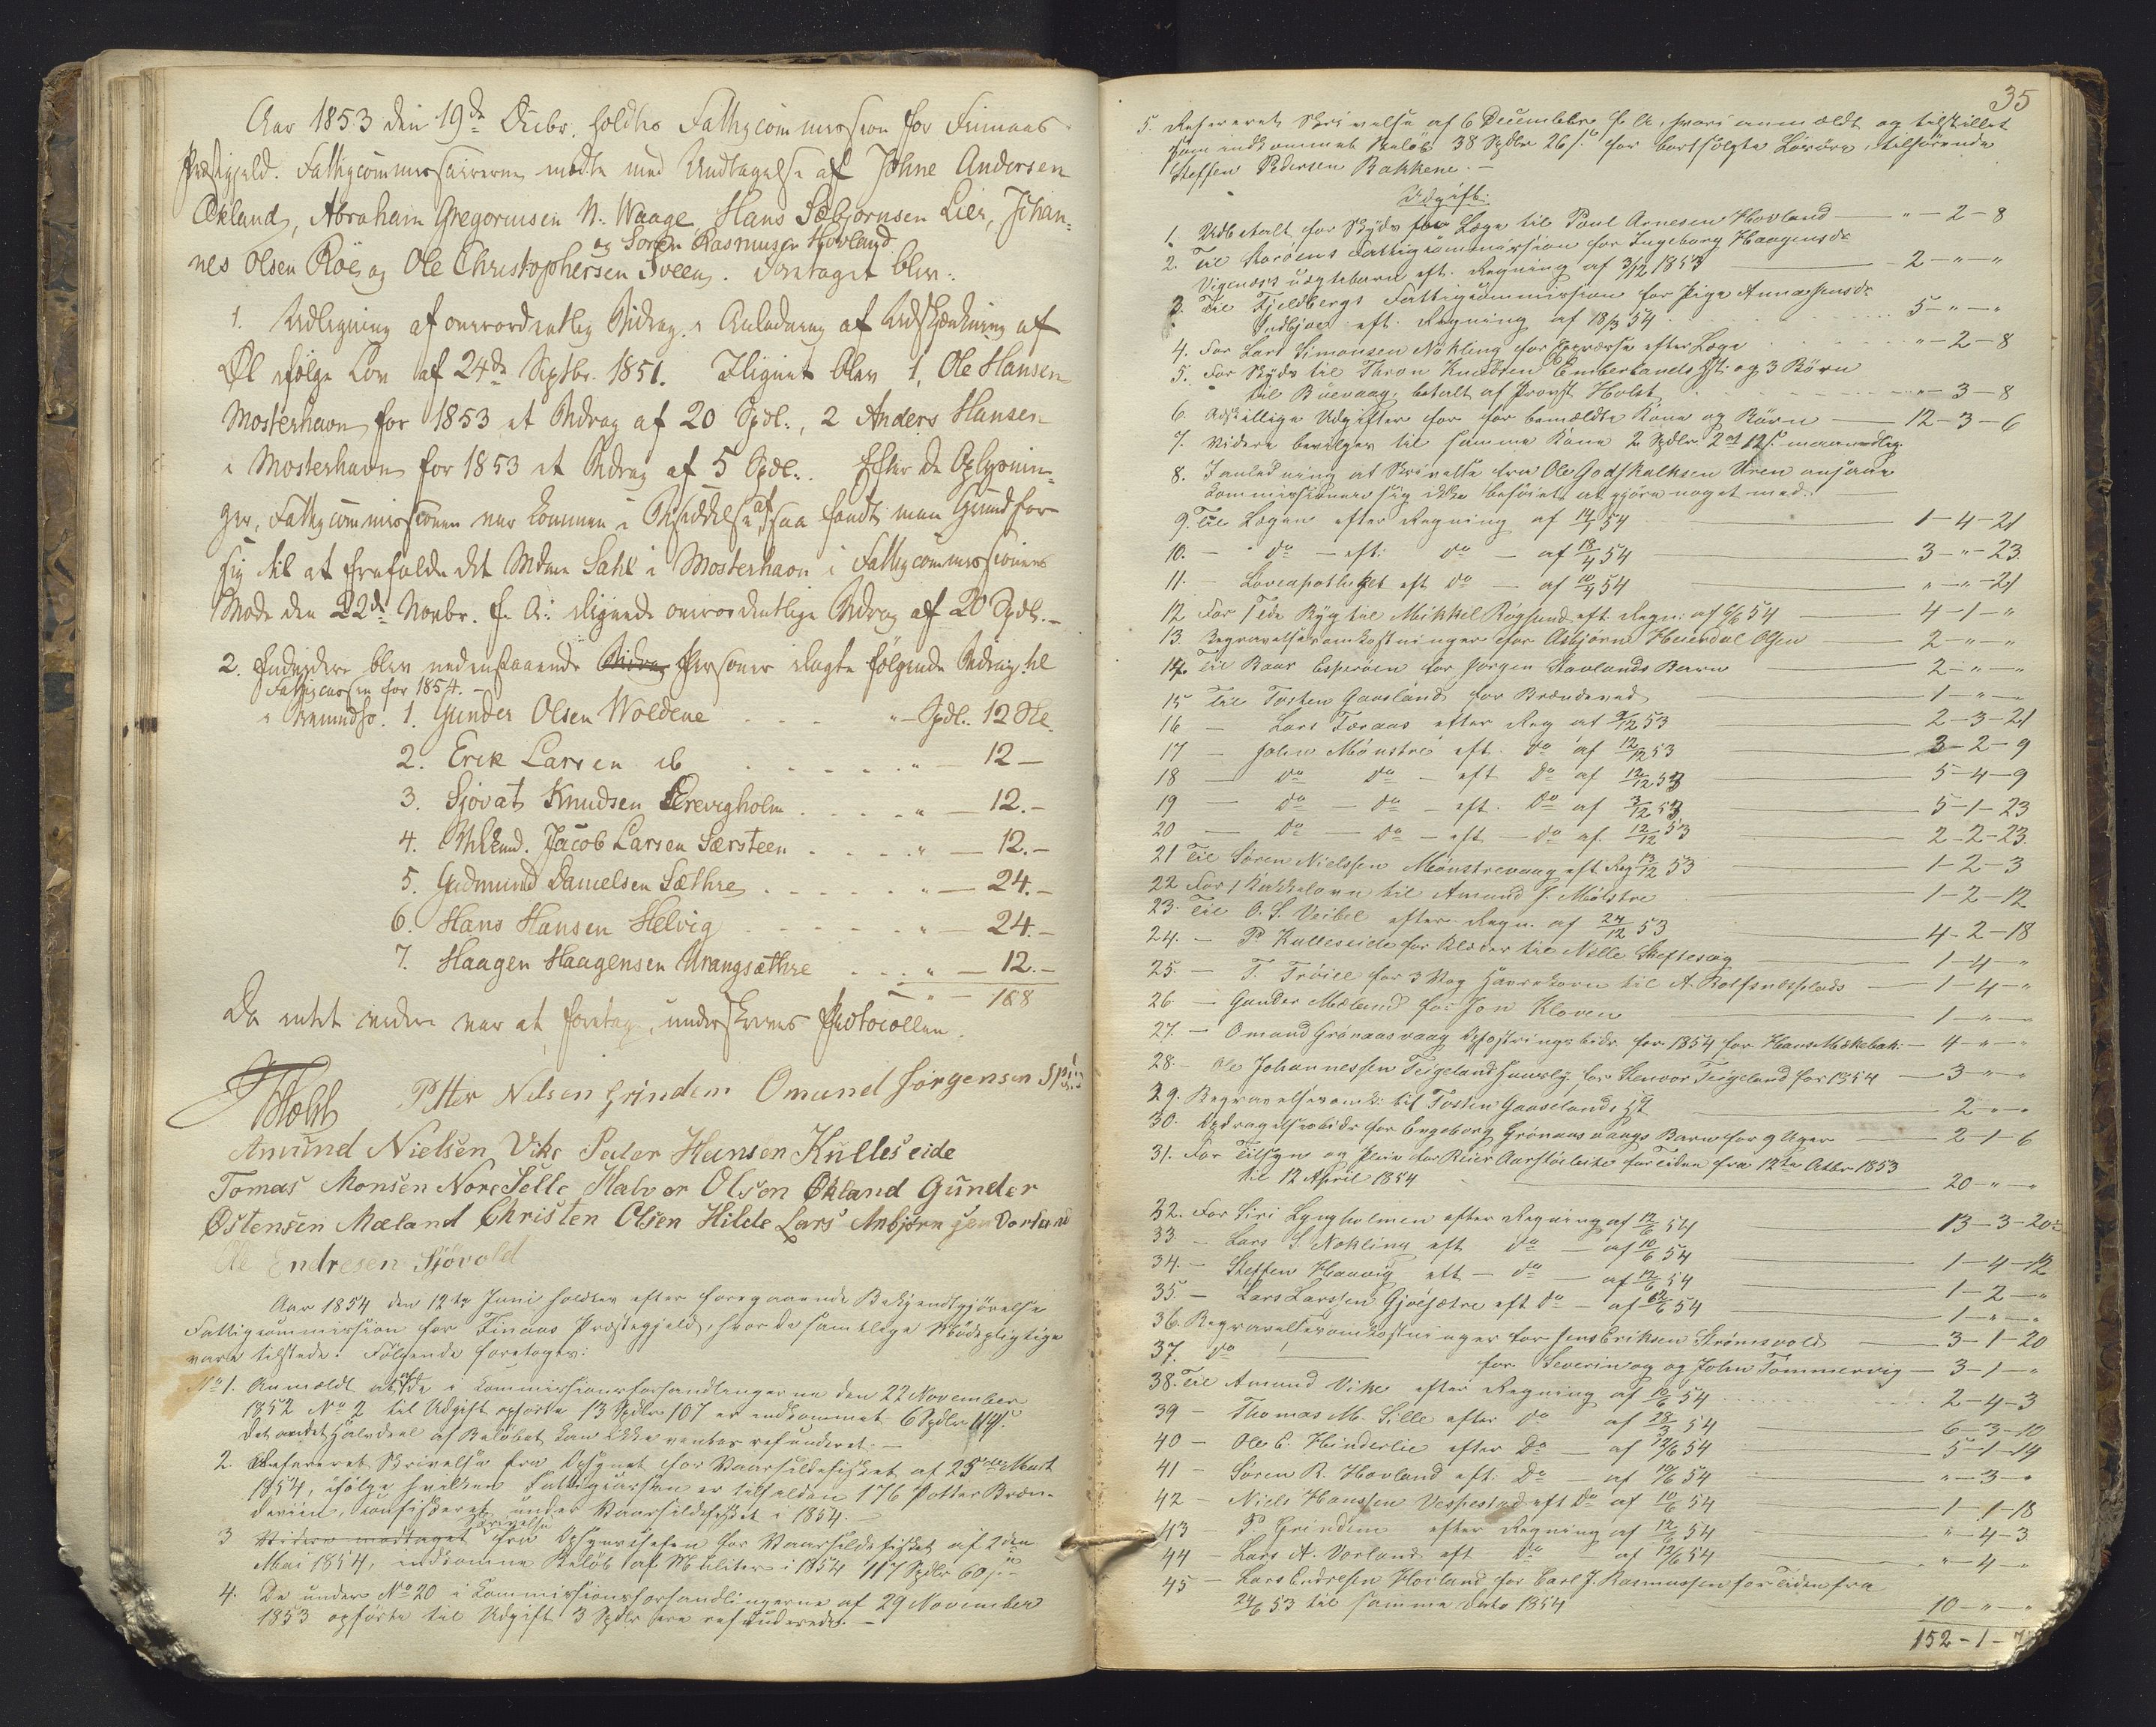 Aar 1853 den 19de Decbr. holdtes Fattigcommission for Finnaas
Præstegjeld. Fattigcommissairerne mødte med Undtagelse af Johne Andersen
Økland, Abraham Gregoriusen N. Waage, Hans Sæbjørnsen Lier, Johan-
og Soren Rasmusen Hovland
nes Olsen Röe, og Ole Christophersen Sveen. Foretaget blev:
1. Udligning af overordentlig Bidrag i Anledning af Udskjænkning af
Øl ifölge Lov af 24de Septbr. 1851. Ilignet blev 1, Ole Hansen
Mosterhavn for 1853 et Bidrag af 20 Spdl., 2 Anders Hansen
i Mosterhavn for 1853 et Bidrag af 5 Spdl. Efter de Oplysnin-
ger, Fattigcommissionen var kommen i Besiddelse af, saa fandt man Grund for
sig til at frafalde det Mdme Sahl i Mosterhavn i Fattigcommissionens
Møde den 22de Novbr. f. A. ilignede overordentlige Bidrag af 20 Spdl. -
2. Endvidere blev nedenstaaende Bidrag Personer ilagte følgende Bidrag til
Fattigcassen for 1854. -
i Bremnes So. 1. Gunder Olsen Woldene " - Spdl. 12 Sk.
2. Erik Larsen ib " - 12 -
3. Sjovat Knudsen Drevigholm " - 12. -
4. Jacob Larsen Særsteen " - 12. -
5. Gudmund Danielsen Sæthre " - 24. -
6. Hans Hansen Helvig " - 24. -
7. Haagen Haagensen Urangsæthre " - 12. -
" - 108
Da intet videre var at foretage, underskreves Protocollen.
Holst Petter Nilsen Grindem Omund Jørgensen
Amund Nielsen Vike Peder Hansen Kulleseide
Tomas Monsen Nore Selle Halvor Olsen Økland Gunder
Østensen Mæland Christen Olsen Hilde Lars Anbjørnsen Vorland
Ole Endresen Sjövold
Aar 1854 den 12te Juni holdtes efter foregaaende Bekjendtgjörelse
Fattigcommission for Finaas Præstegjeld, hvor de samtlige Mödepligtige
vare tilstede. Fölgende foretoges:
No 1. Anmældt at de i Kommissionsforhandlingerne den 22 November
1852 No 2 til Udgift opförte 13 Spdlr 107 er indkommet 6 Spdlr 114 s.
Det andet Halvdeel af Belöbet kan ikke ventes refunderet. -
2. Refereret Skrivelse fra Opsynet for Vaarsildefisket af 25de Marts
1854, ifölge hvilken Fattigcassen er tilfalden 176 Potter Bræn-
deviin, confiskeret under Vaarsildefisket i 1854. -
3 Videre modtaget Skrivelse fra Opsynschefen for Vaarsildefisket af 2den
Mai 1854, indkomne Belöb af Mulkter i 1854 117 Spdlr 60 s. -
4. De under No 20 i Kommissionsforhandlingerne af 29 November
1853 opförte til Udgift 3 Spdlr ere refunderede. -
35
5. Refereret Skrivelse af 6 December f. A., hvori anmældt og tilstillet
som indkommet Belöb 38 Spdlr 26 s. for bortsolgte Lösöre, tilhörende
Steffen Pedersen Bakkene. -
Udgift.
1. Udbetalt for Skyds for Læge til Poul Arnesen Hovland " - 2 - 8
2. Til Storöens Fattigkommission for Ingeborg Haagensdr
Vigenæs's uægtebarn eft. Regning af 3/12 1853 2 - " - "
3. Til Fjeldbergs Fattigkommission for Pige Anna Jensdr
Indbjoe eft. Regning af 18/3 54 5 - " - "
4. For Lars Simonsen Nökling for Expresse efter Læge " - 2 - 8
5. For Skyds til Thron Knudsen Emberlands Hst. og 3 Börn
til Böevaag, betalt af Provst Holst " - 3 - 8
6. Adskillige Udgifter for for bemældte Kone og Börn 12 - 3 - 6
7. Videre bevilges til samme Kone 2 Spdlr 2 ort 12 s. maanedlig.
8. I anledning at Skrivelse fra Ole Godskalksen Uren ansaae
Kommissionen sig ikke beföiet at gjöre noget med.
9. Til Lægen efter Regning af 14/1 54 1 - 4 - 21
10. - do - eft. do - af 18/4 54 3 - " - 23
11. - Löveapotheket eft do - af 10/4 54 " - " - 21
12 For 1 Tde Byg til Mikkel Rögsund eft. Regn. af 6/6 54 4 - 1 - "
13 Begravelsesomkostninger for Asbjörn Heierdal Olsen 2 - " - "
14 Til Baar Espevæn for Jorgen Stavlands Barn 2 - " - "
15 Til Torsten Gaasland for Brændeved 1 - " - "
16 - Lars Foraas efter Reg af 9/12 53 2 - 3 - 21
17 - John Mönstre eft. do af 12/12 53 3 - 2 - 9
18 - do do - eft do af 12/12 53 5 - 4 - 9
19 - do - do - eft. do af 3/12 53 5 - 1 - 23
20 - do - do - eft - do af 12/12 53 2 - 2 - 23
21 Til Sören Nielsen Mönstrevaag eft Reg 13/12 53 1 - 2 - 3
22 For 1 Kakkelovn til Amund J. Mölstre 1 - 2 - 12
23. Til O. S. Veibel efter Regn. af 24/12 53 4 - 2 - 18
24. - P. Kulleseide for Klæder til Nille Skeftesvig 1 - 4 - "
25. - T. Tröiel for 3 Vog Havrekorn til A. Rolfsnesplads 1 - 4 - "
26 - Gunder Mæland for Jon Kloven 1 - " - "
27. - Omund Grönaasvaag Opfostringsbidr. for 1854 for Hans Mökebak. 4 - " - "
28. - Ole Johannessen Teigeland Huusly for Stenvor Teigeland for 1854 3 - " - "
29. Begravelsesomk. til Tosten Gaaselands Ht 2 - " - "
30. Opdragelsesbidr for Engeborg Grönaasvaags Barn for 9 Uger 2 - 1 - 6
31. For Tilsyn og Pleie for Reier Aarstöeleite for Tiden fra 12te Octbr 1853
til 12 April 1854 20 - " - "
32. For Siri Lyngholmen efter Regning af 12/6 54 13 - 3 - 20
33 - Lars S. Nökling eft do - af 10/6 54 1 - 4 - 12
34. - Steffen Haavig eft - do - af 12/6 54 1 - 2 - "
35. - Lars Larssen Gjösætre eft do - af 12/6 54 1 - " - "
36. Begravelsesomkostninger for Jens Eriksen Strömsvold 3 - 1 - 20
37. do for Severin og og John Tömmervig 3 - 1 - "
38. Til Amund Vike efter Regning af 10/6 54 2 - 4 - 3
39 - Thomas M. Sille efter do af 28/3 54 6 - 3 - 10
40 - Ole C. Hinderlie efter do - af 12/6 54 5 - 1 - 14
41 - Sören R. Hovland eft. do - af 10/6 54 " - 3 - "
42 - Niels Hanssen Vespestad eft do af 10/6 54 1 - 1 - 18
43 P. Grindem efter Regning af 12/6 54 " - 4 - 3
44 - Lars A. Vorland eft do - af 12/6 54 " - 4 - "
45 - Lars Endresen Hoiland for Carl J. Rasmussen for Tiden fra
24/6 53 til samme Dato 1854 10 - " - "
152 - 1 -